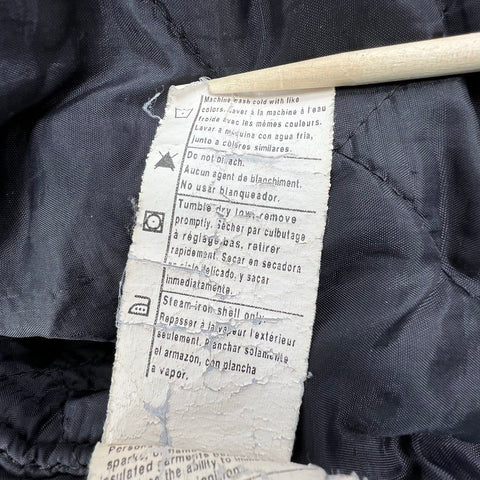 Machine wash cold with like
colors. Laver à la machine à l'eau
froide avec les mèmes couleurs.
Lavar a maquina con agua fria,
junto a colores similares.
Do not bleach.
Aucun agent de blanchiment.
No usar blanqueador.
Tumble dry low, remove
promptly. Sécher par culbutage
à réglage bas, retirer
rapidement. Sacar en secadora
en ciclo delicado, y sacar
inmediatamente.
Steam-iron shell only.
Repasser à la vapeur l'extérieur
seulement, planchar solamente
el armazon, con plancha
a vapor.
Persons
sparks, or flames
insulated garments
the ability to